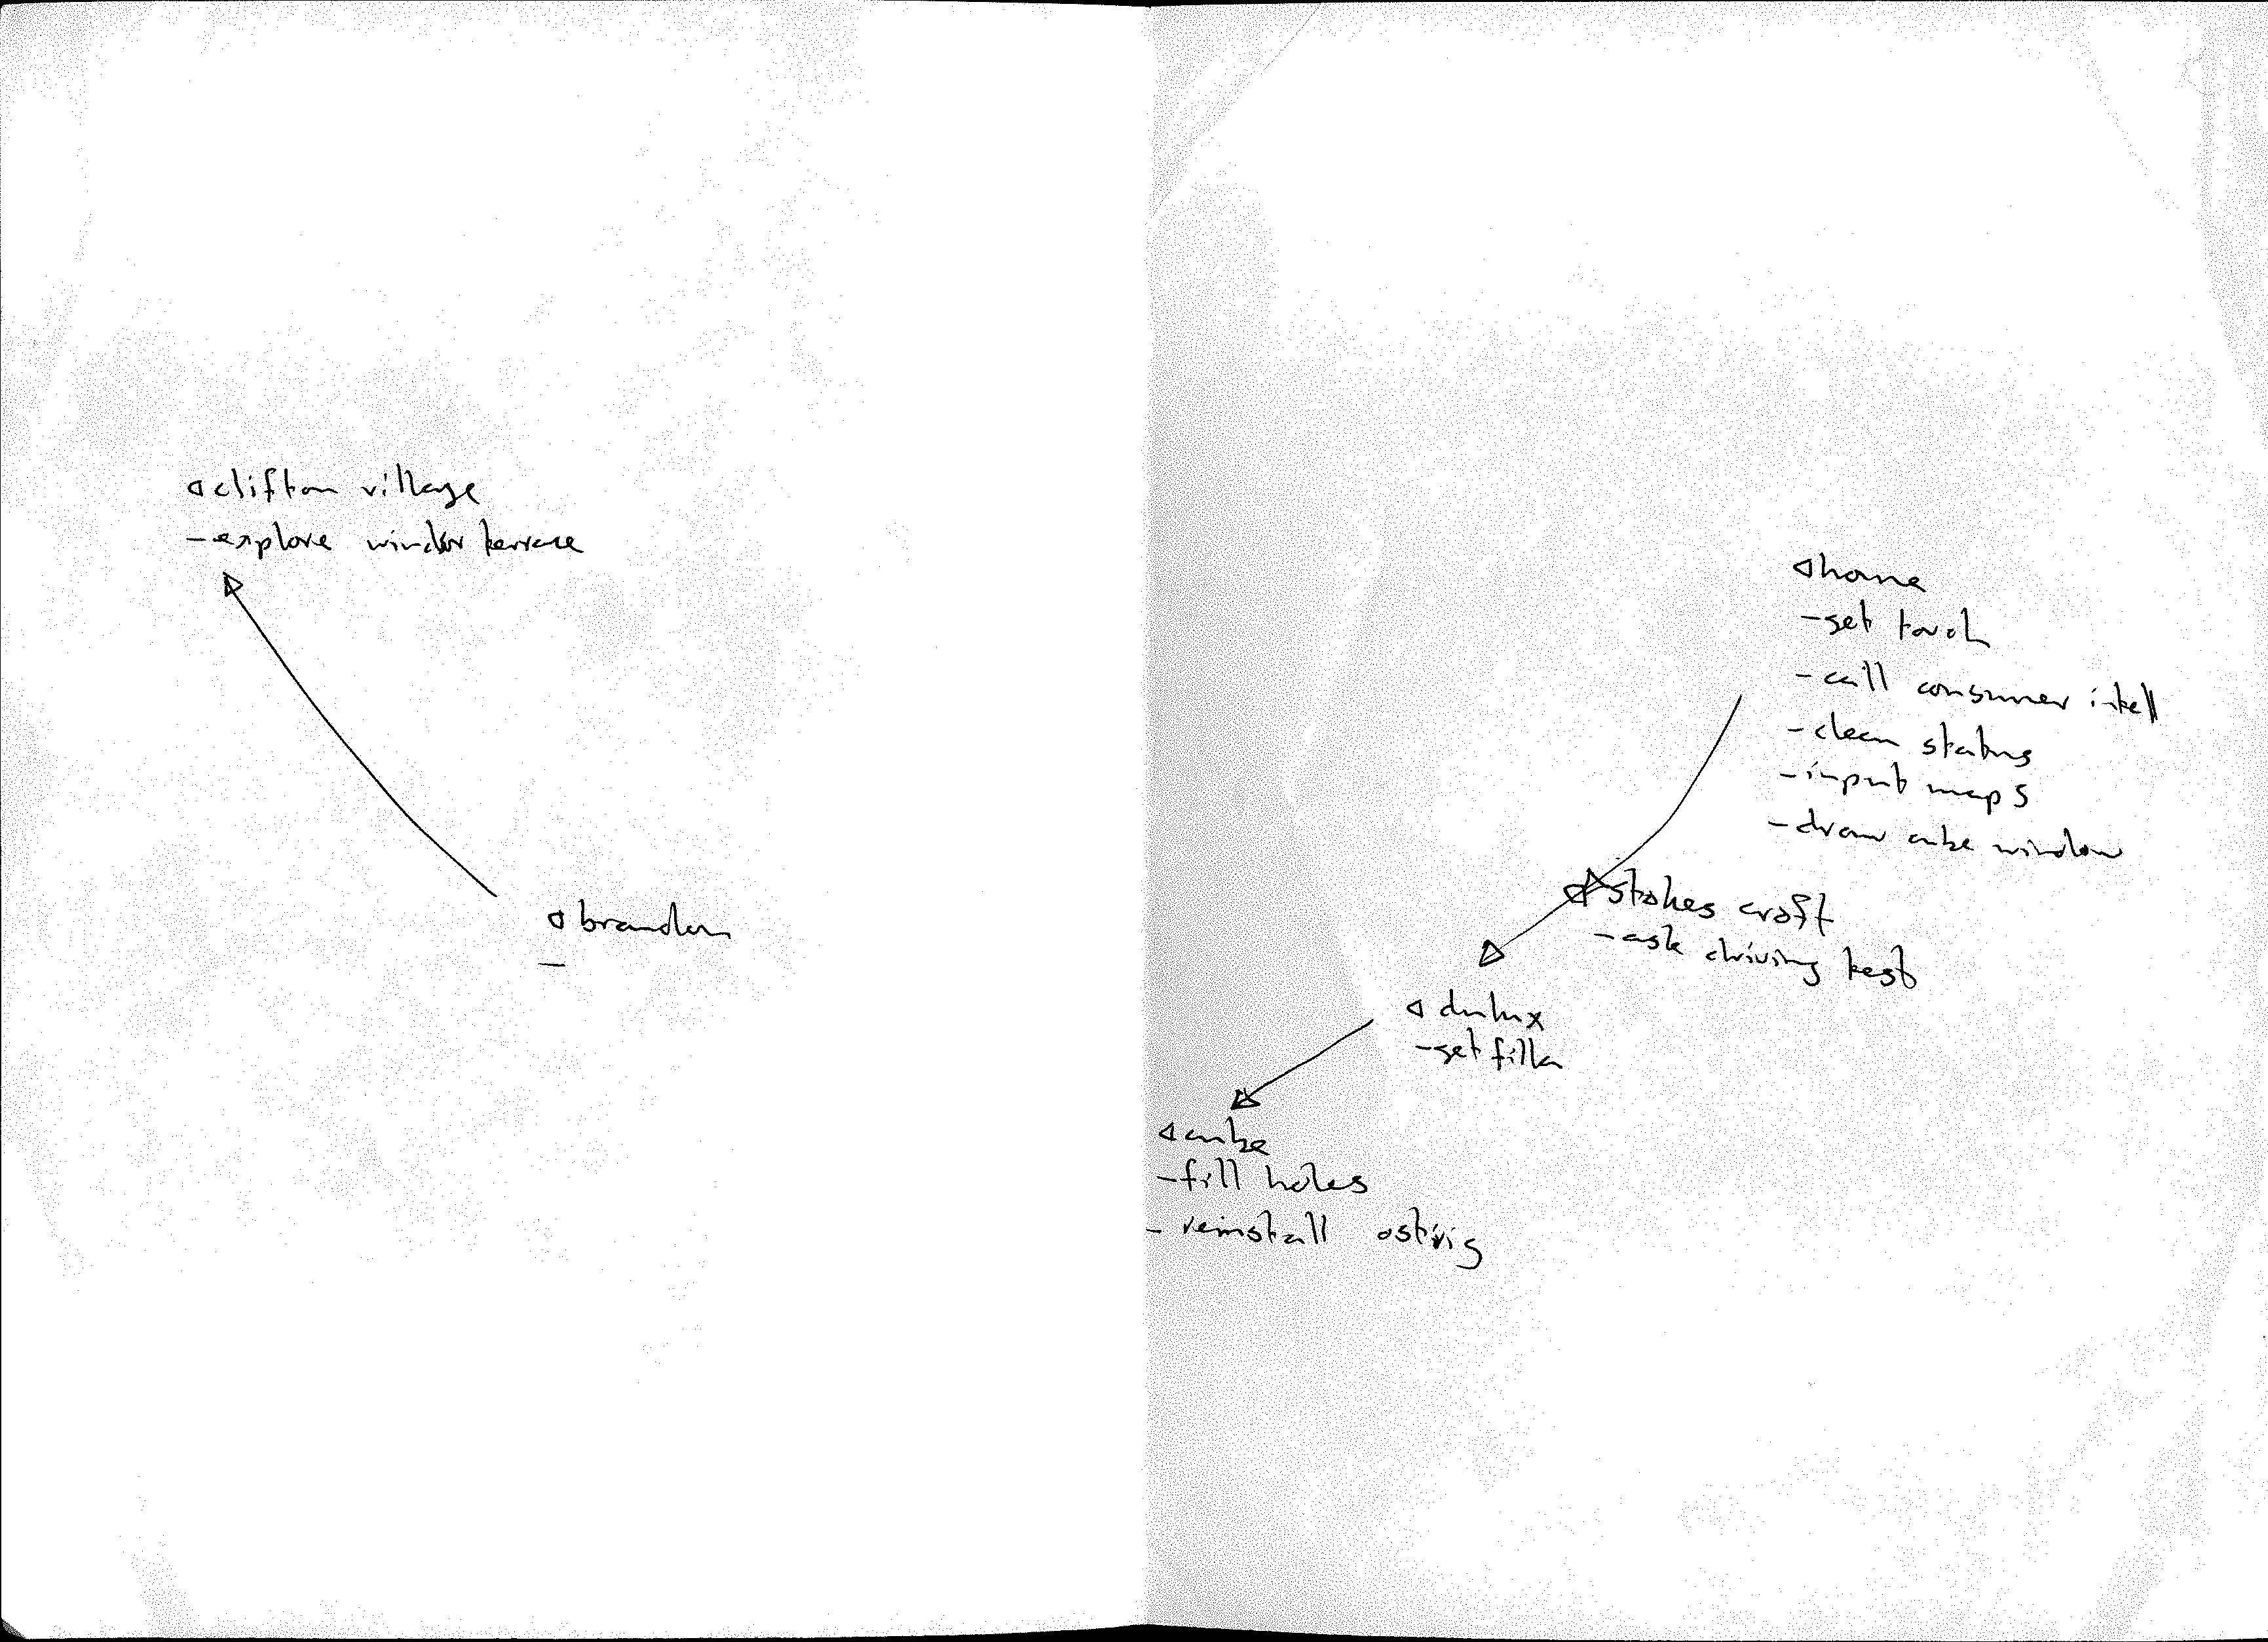 clifton village
- explore windsor terrace
brandon
-
home
- get torch
- call consumer intell
- clean status
- input maps
- draw cube window
stokes croft
- ask driving test
dulux
- get filla
cube
- fill holes
- reinstall